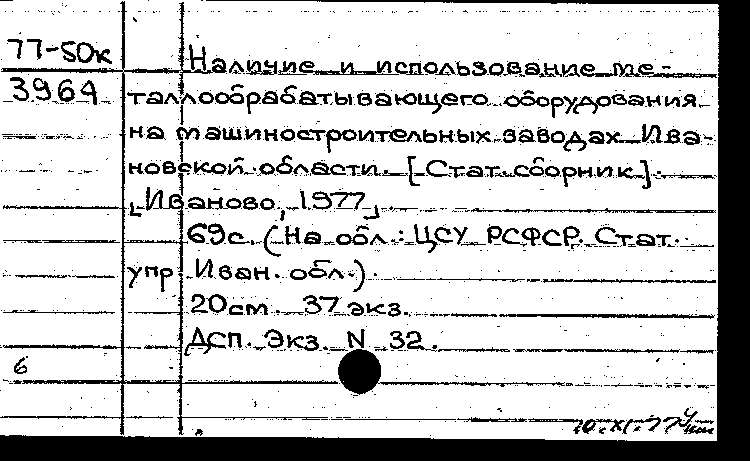 77-50к
3964
Наличие и использование ме-
таллообрабатывающего оборудования
на машиностроительных заводах Ива-
новской области. [Стат. сборник].
[Иваново, 1977]
69с. (На обл.: ЦСУ РСФСР. Стат.
упр. Иван. обл.).
20см. 37 экз.
Дсп. Экз. N 32.
6
10.XI.77